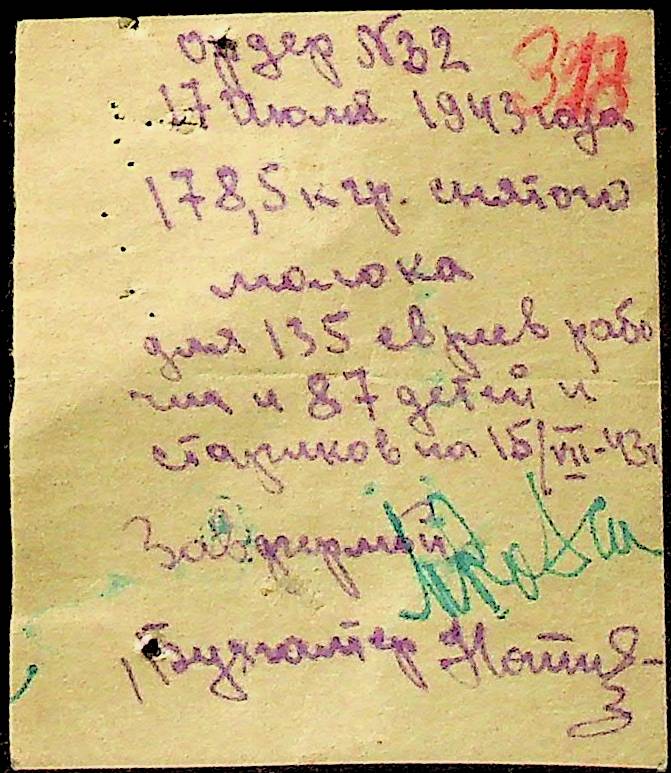 ордер N32
328
17 июля 1943 года
178,5 кгр. снятого
молока
для 135 евреев рабо
чих и 87 детей и
стариков на 15/VII-43г
Завфермой
Бухгалтер